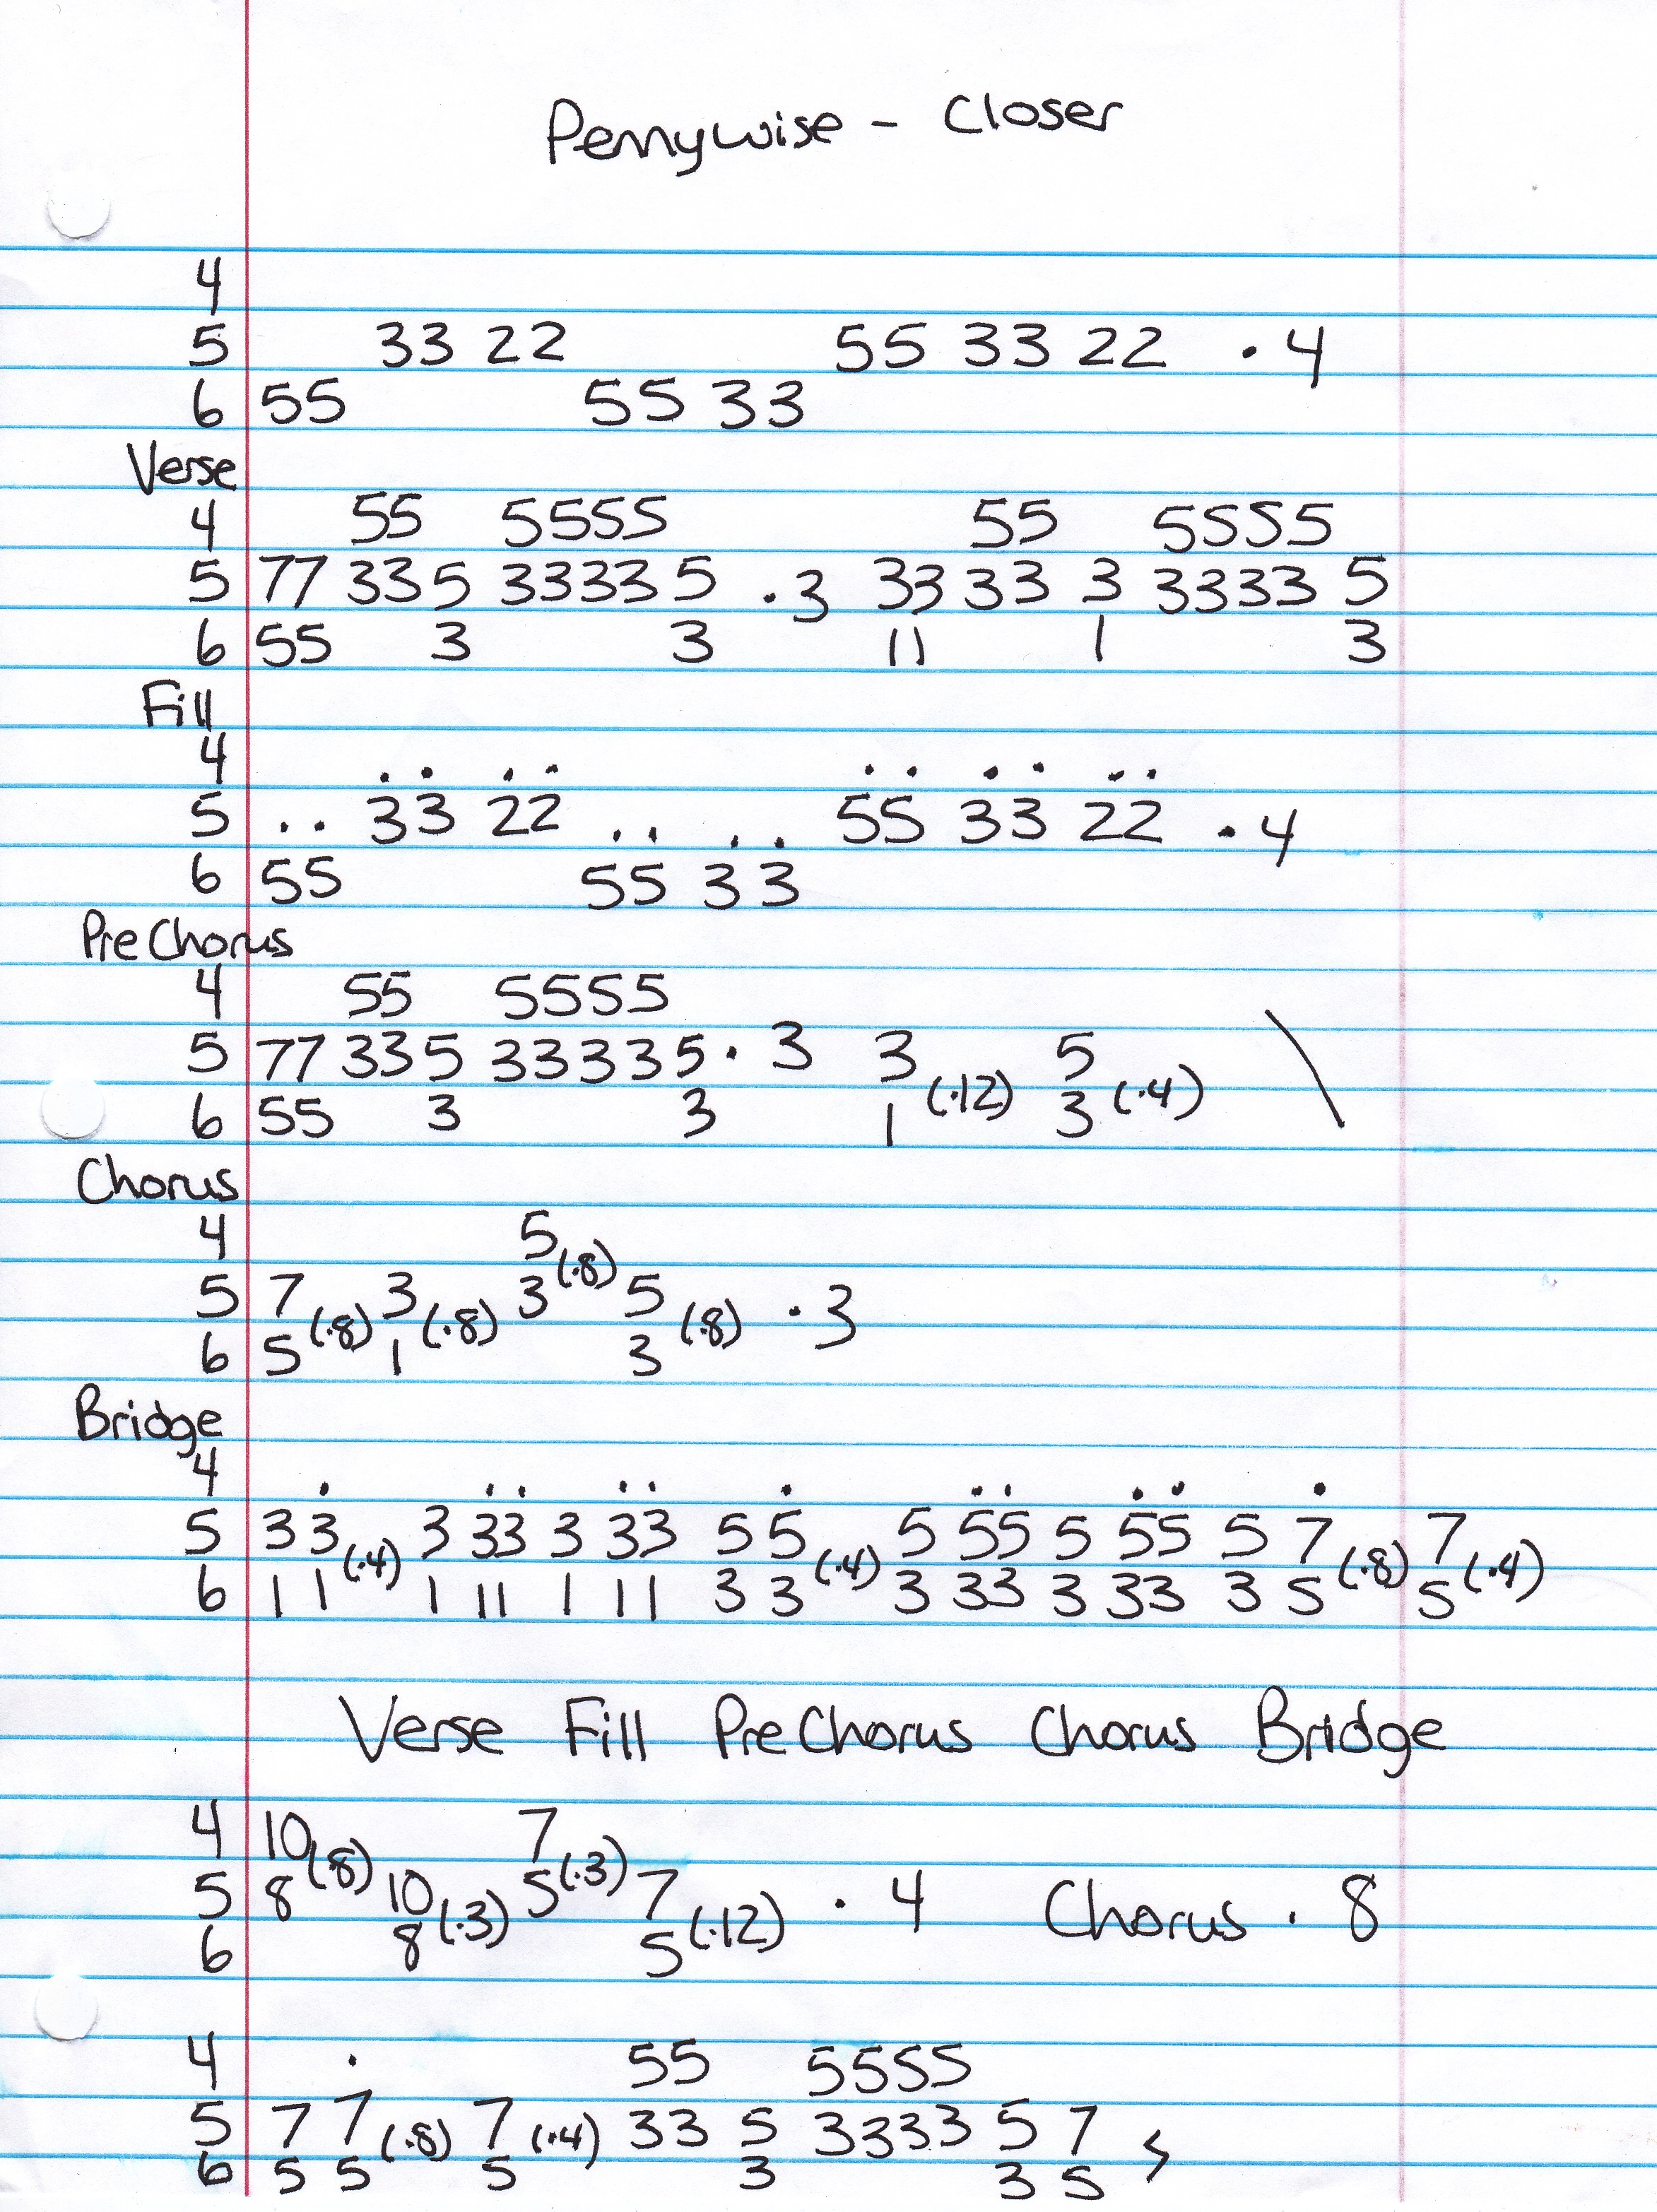 Pennywise - Closer
4
5 33 22 55 33 22 · 4
6 55 55 33
Verse
4 55 5555 55 5555
5 77 33 5 3333 5 · 3 33 33 3 3333 5
6 55 3 3 11 1 3
Fill
4 . . . . . . . . . .
5 . . 33 22 . . . . 55 33 22 · 4
6 55 55 33
PreChorus
4 55 5555
5 77 33 5 3333 5 · 3 3 (·12) 5 (·4) \
6 55 3 3 1 3
Chorus
4 5 (·8)
5 7 (·8) 3 (·8) 3 5 (·8) · 3
6 5 1 3
Bridge
4 . . . . . . . . . . .
5 3 3 (·4) 3 33 3 33 5 5 (·4) 5 55 5 55 5 7 (·8) 7 (·4)
6 1 1 1 11 1 11 3 3 3 33 3 33 3 5 5
Verse Fill PreChorus Chorus Bridge
4 10 (·8) 7 (·3)
5 8 10 (·3) 5 7 (·12) · 4 Chorus · 8
6 8 5
4 . 55 5555
5 7 7 (·8) 7 (·4) 33 5 3333 5 7
6 5 5 5 3 3 5